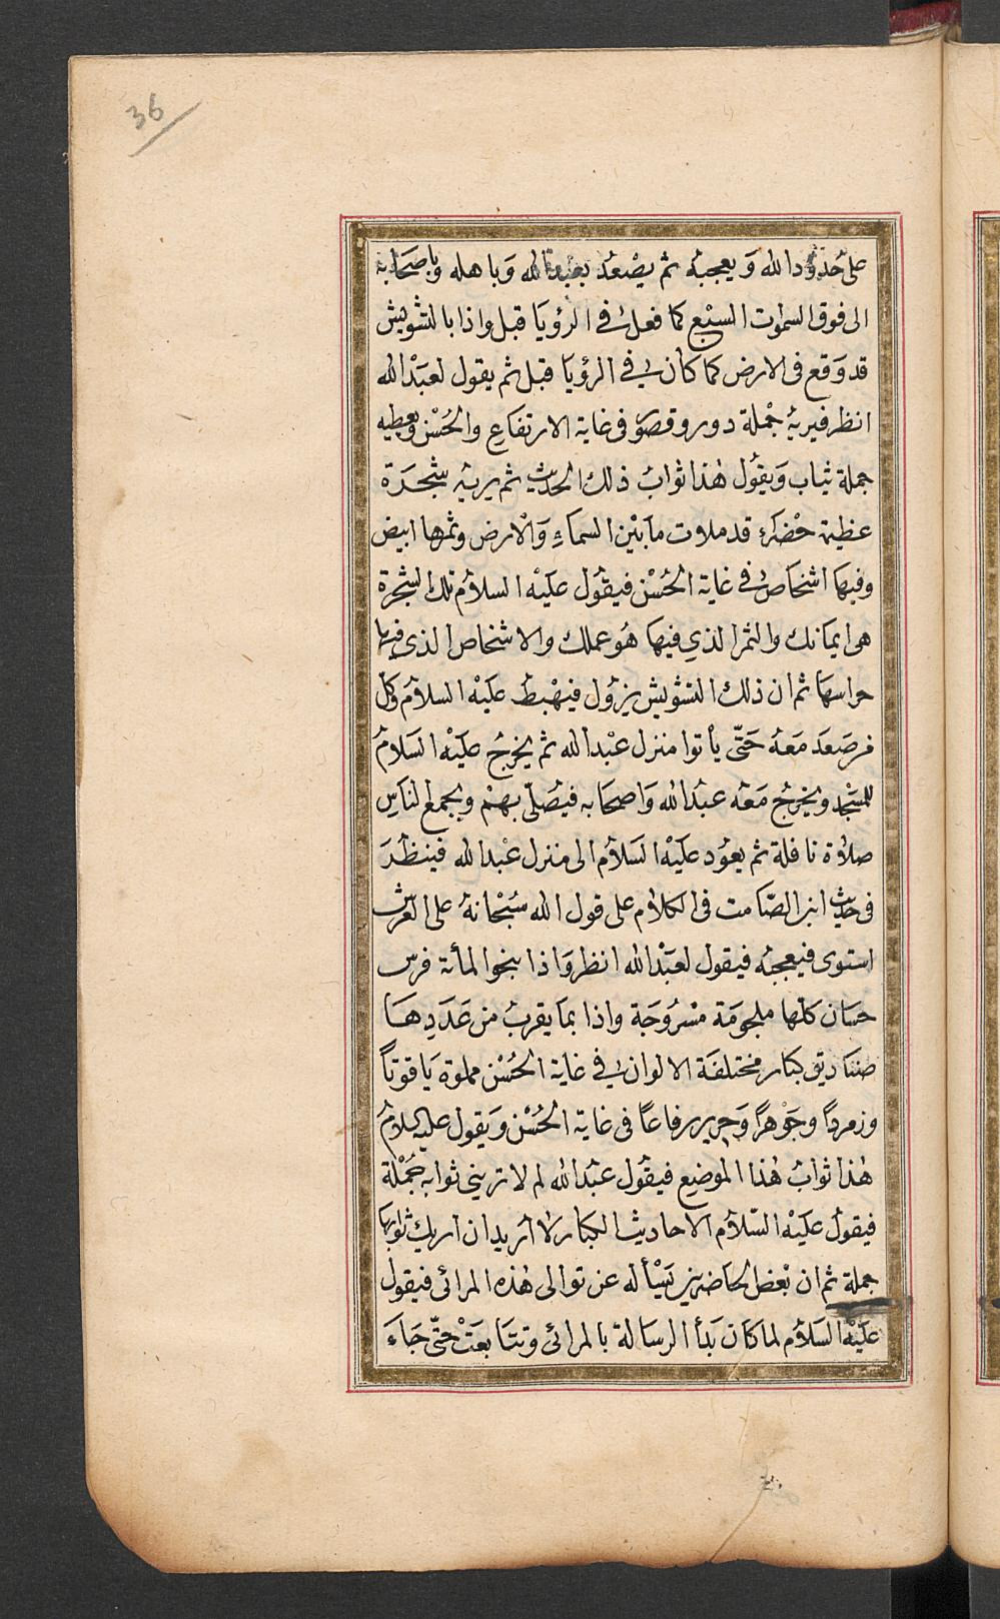 36
على حدود الله وَيعجبهُ ثم يصْعَد بعبد الله وَباهله وباصحَابه
الى فوق السموٰت السبْع كما فعل في الرؤيَا قبل واذا بالتشويش
قد وَقع فى الارض كما كان في الرؤيَا قبل ثم يقول لعبَدْ الله
انظر فيريهُ جُملة دور وقصوَر فى غاية الارتفاع والحُسْن ويعطيه
جملة ثياب وَيقُول هٰذا ثوابُ ذلك الحَديث ثم يريهُ شجَرَة
عظيمة خضرَاء قد ملات مابَيْن السماءِ وَالارض وثمرها ابيض
وفيها اشخاص في غاية الحُسْن فيقُول علَيْه السلامُ تلك الشجرة
هى ايمانك والثمر الذي فيها هُو عملك والاشخاص الذى فيها
حراسهَا ثم ان ذلك التشويش يزول فيهْبطُ علَيْه السلامُ وَكل
من صَعَدَ مَعَهُ حَتّى ياْتوا منزل عبْد الله ثم يخرجُ علَيْه السَلامُ
للمسْجد ويخرج مَعَه عبَد الله وَاصحَابه فيُصَلّى بهمْ وبجمع النَاسِ
صلاة نافلة ثم يعوُد علَيْه السَلامُ الى منزل عبْد الله فينظُرَ
فى حَديث ابن الصّامت فى الكلام على قول الله سُبْحانهُ على العرش
استوى فيعجبهُ فيقول لعبَدْ الله انظر وَاذا بنحو المأئة فرس
حسَان كلها ملجومَة مسْرُوجَة واذا بما يقربُ من عَدَدِهَا
صنَاديق كبَار مختلفَة الالوان في غاية الحُسْن مملوة يَاقوتاً
وزمرداً وجَوْهراً وَحرير رفاعاً فى غاية الحُسْن وَيقول عليه السلامُ
هٰذا ثوابُ هٰذا الموضع فيقُول عبَد الله لم لا ترينى ثوابه جُمْلة
فيقولُ علَيْه السّلامُ الاحاديث الكبار لا اُريد ان اريك ثوابها
جملة ثم ان بعْض الحَاضرين يَسْأله عن توالى هٰذه المرائى فيقول
علَيْه السَلامُ لما كان بَدأ الرسَالة بالمرائى وتتابعَتْ حتّى جَاءَ